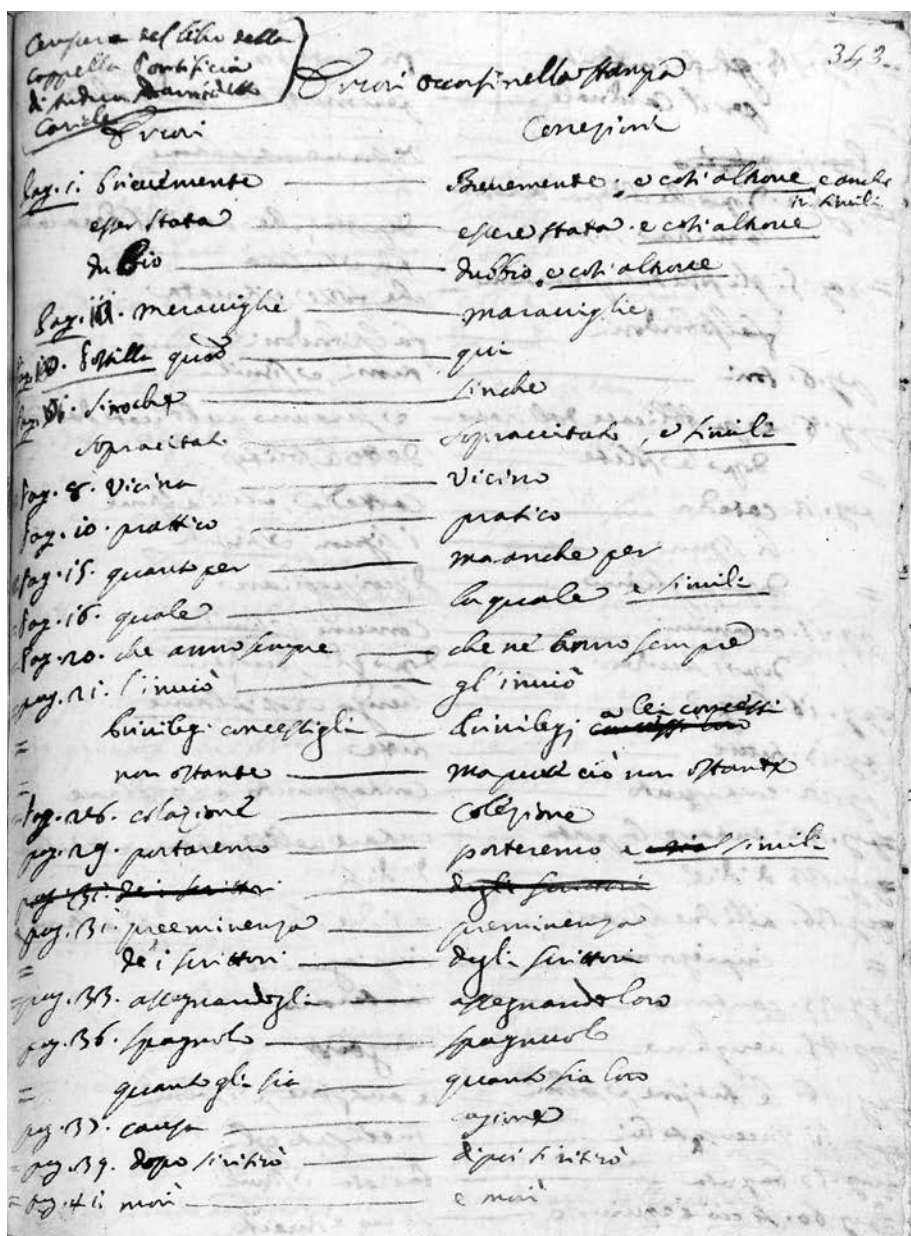 Censura del libro della
Cappella Pontificia
di Andrea
343.
Errori occorsi nella stampa
Errori Correzioni
Pag. 1. brievemente Brevemente. e così altrove e anche
in simili
esser stata essere stata. e così altrove
dubio dubbio. e così altrove
Pag. III. meraviglie maraviglie
Postilla qui
sinche
sopracitati sopraccitati, e simili
Pag. 8. Vicina Vicino
Pag. 10. prattico pratico
Pag. 15. quanto per ma anche per
Pag. 16. quale la quale e simili
Pag. 20. che anno sempre che ne hanno sempre
pag. 21. l'inviò gl'inviò
= Privilegi concessigli Privilegi a lei concessi
= non ostante ma ciò non ostante
Pag. 26. colazione colezione
pag. 29. portaremo porteremo e simili
pag. 31. dei scrittori degli scrittori
pag. 31. preeminenza preminenza
= de i scrittori degli scrittori
pag. 33. assegnandogli assegnando loro
pag. 36. spagnolo spagnuolo
= quanto gli sia quanto sia loro
pag. 37. causa cagione
pag. 39. dopo si ritirò dipoi si ritirò
pag. 41 morì e morì